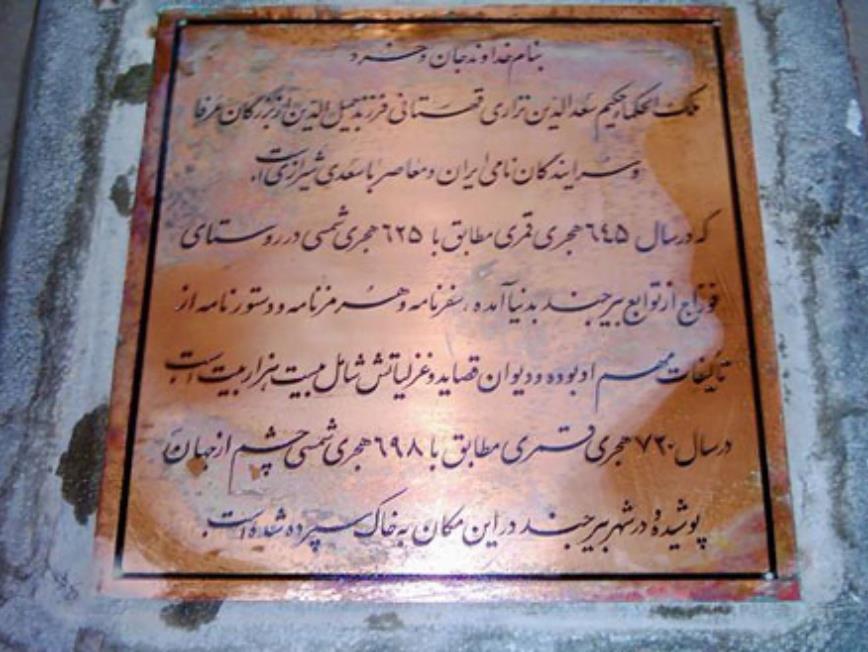 بنام خداوند جان و خرد
ملک الحکماء حکیم سعد الدین نزاری قهستانی فرزند جمیل الدین از بزرگان عرفا
و سرایندگان نامی ایران و معاصر با سعدی شیرازی است
که در سال ٦٤٥ هجری قمری مطابق با ٦٢٥ هجری شمسی در روستای
فوداج از توابع بیرجند بدنیا آمده ، سفرنامه و هرمزنامه و دستورنامه از
تألیفات مهم او بوده و دیوان قصاید و غزلیاتش شامل بیست هزار بیت است
در سال ٧٢٠ هجری قمری مطابق با ٦٩٨ هجری شمسی چشم از جهان
پوشیده و در شهر بیرجند در این مکان به خاک سپرده شده است